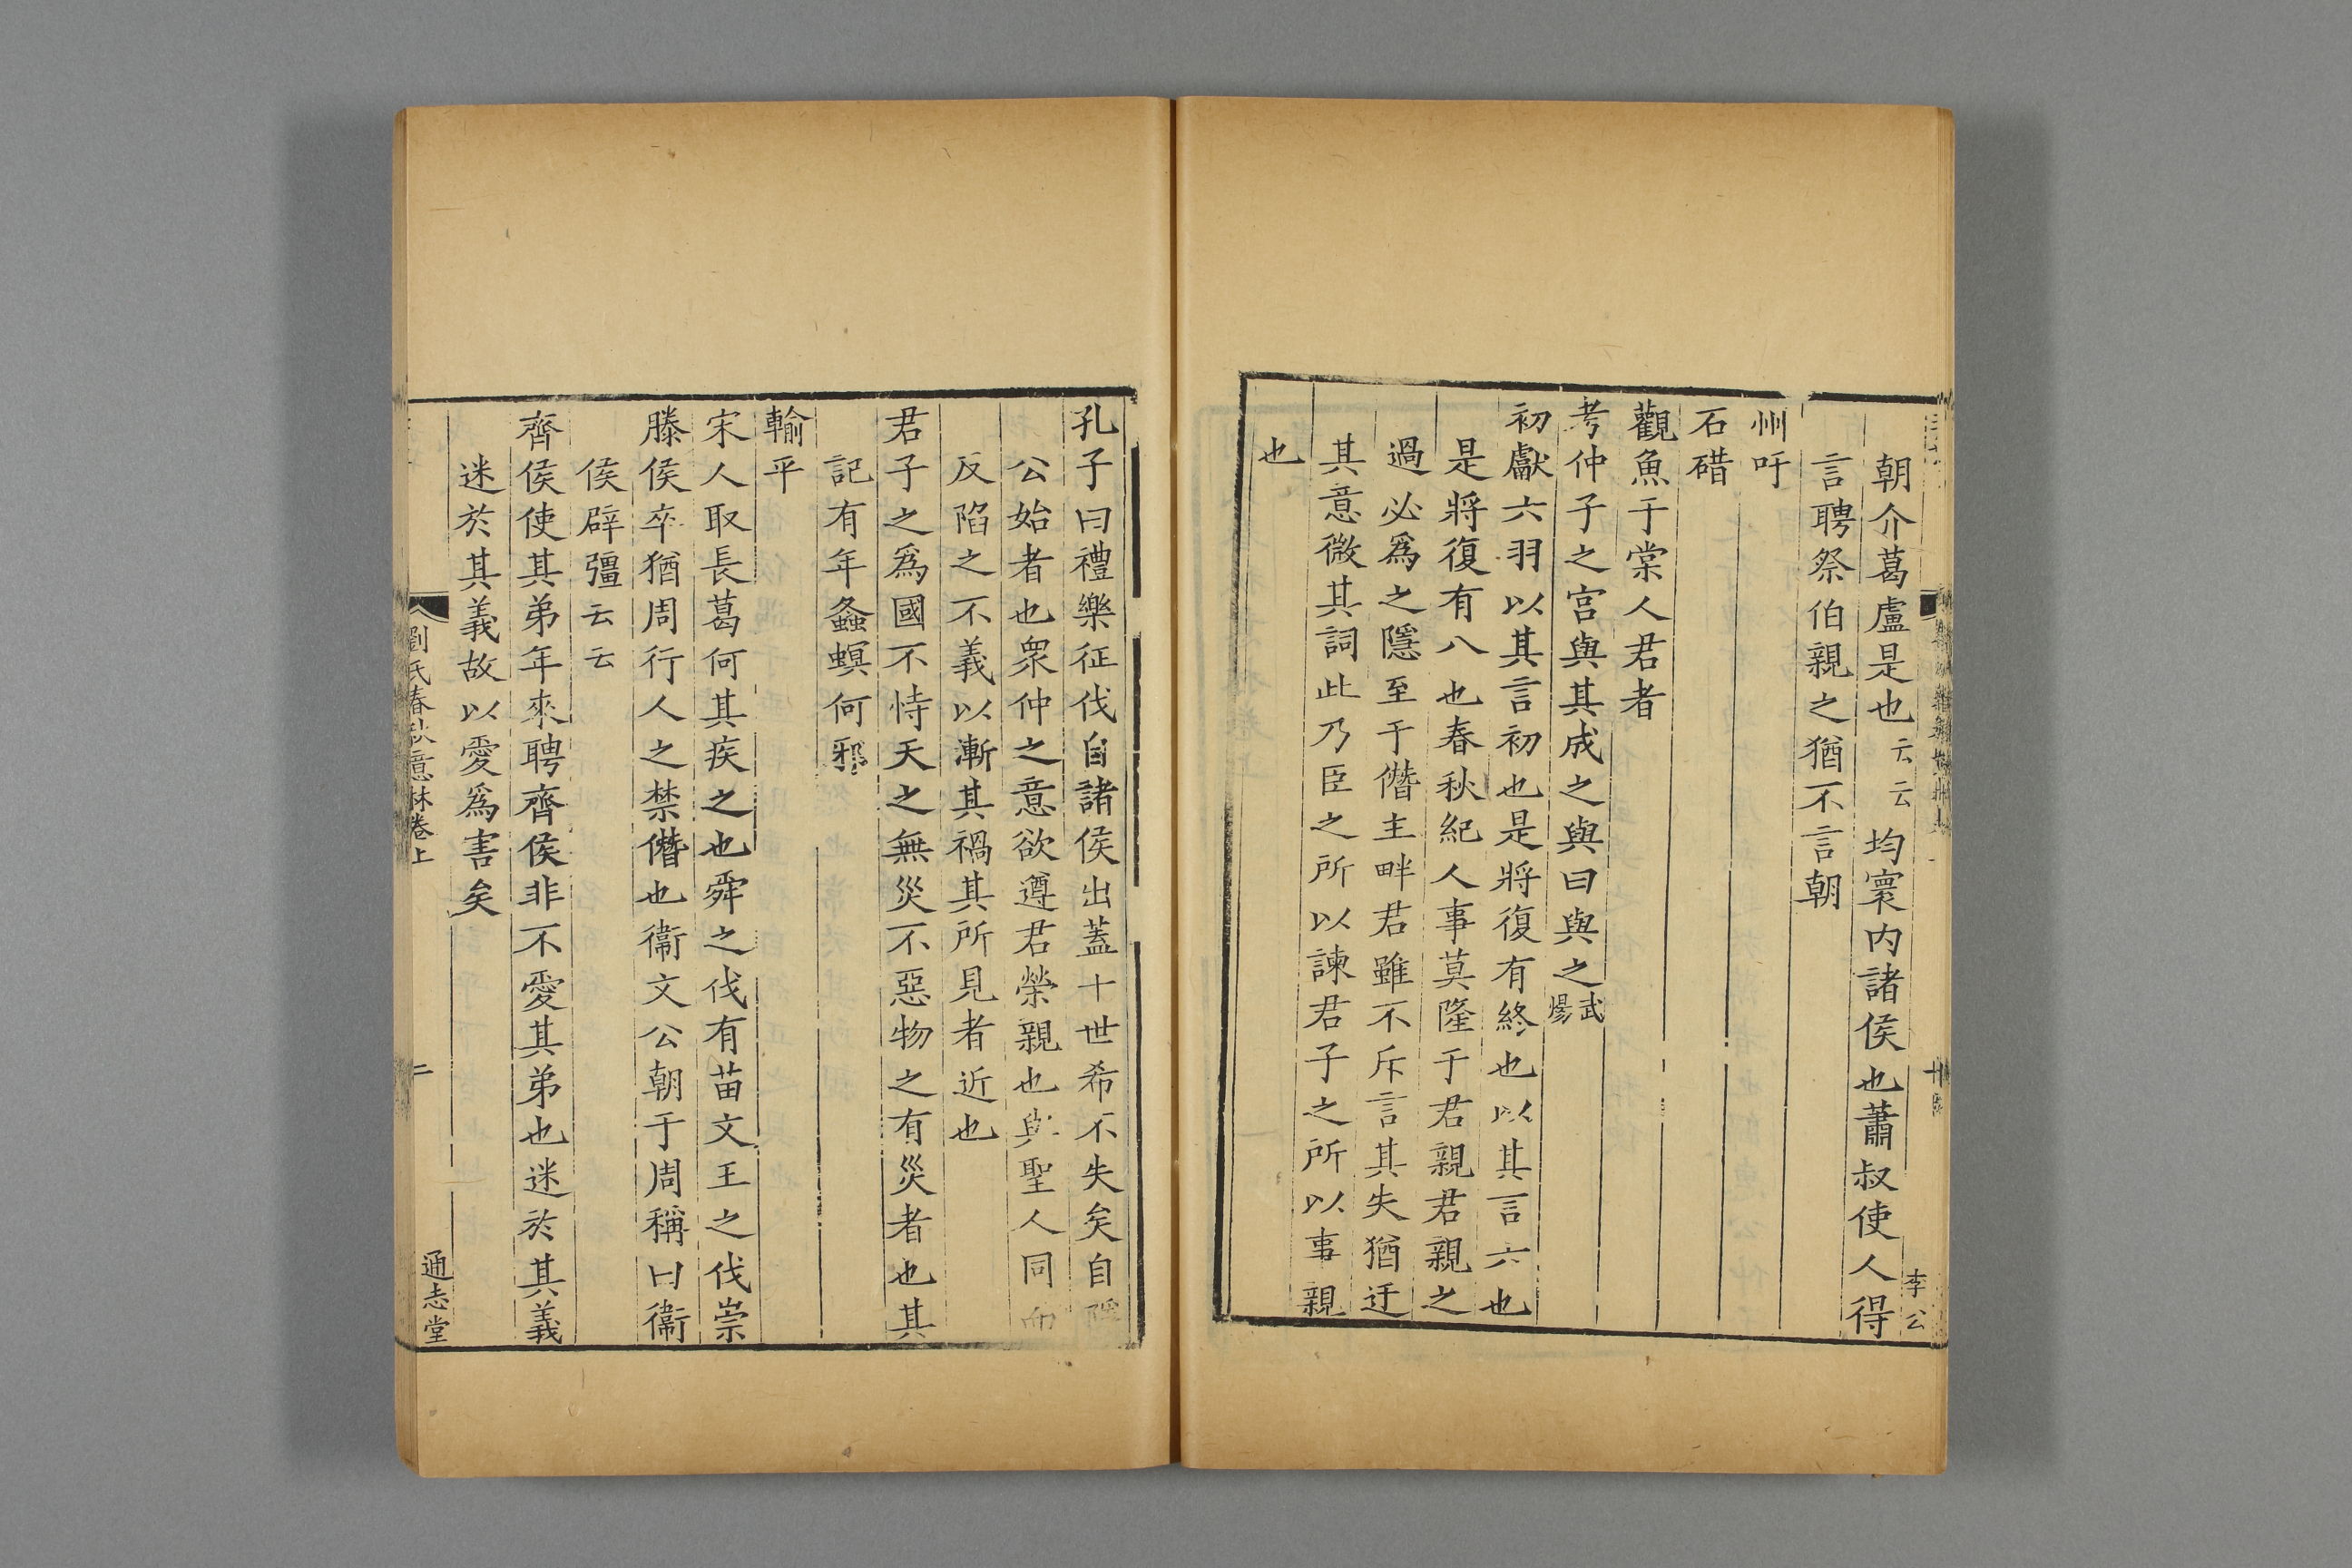 朝介葛盧是也云云均寰内諸侯也蕭叔使人得
言聘祭伯親之猶不言朝
州吁
石碏
觀魚于棠人君者
考仲子之宫與其成之與曰與之武煬
初獻六羽以其言初也是將復有終也以其言六也
是將復有八也春秋紀人事莫隆于君親君親之
過必爲之隱至于僭主畔君雖不斥言其失猶迂
其意微其詞此乃臣之所以諫君子之所以事親
也
李公
孔子曰禮樂征伐自諸侯出蓋十世希不失矣自隱
公始者也衆仲之意欲遵君榮親也與聖人同而
反陷之不義以漸其禍其所見者近也
君子之爲國不恃天之無災不惡物之有災者也其
記有年螽螟何邪
輸平
宋人取長葛何其疾之也舜之伐有苗文王之伐崇
滕侯卒猶周行人之禁僭也衞文公朝于周稱曰衞
侯辟彊云云
齊侯使其弟年來聘齊侯非不愛其弟也迷於其義
迷於其義故以愛爲害矣
劉氏春秋意林卷上
二
通志堂